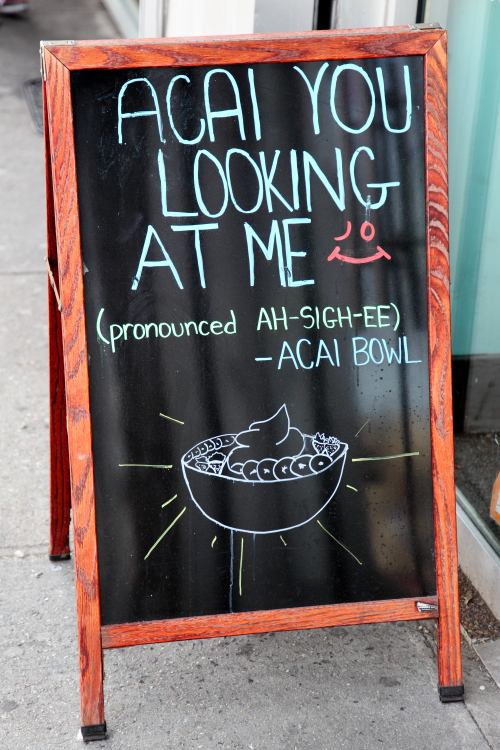 ACAI YOU
LOOKING
AT ME
(pronounced AH-SIGH-EE)
-ACAI BOWL